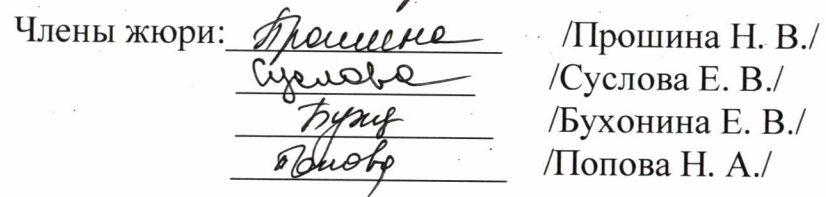 Члены жюри: Прошина /Прошина Н. В./
Суслова /Суслова Е. В./
Бух /Бухонина Е. В./
Попова /Попова Н. А./